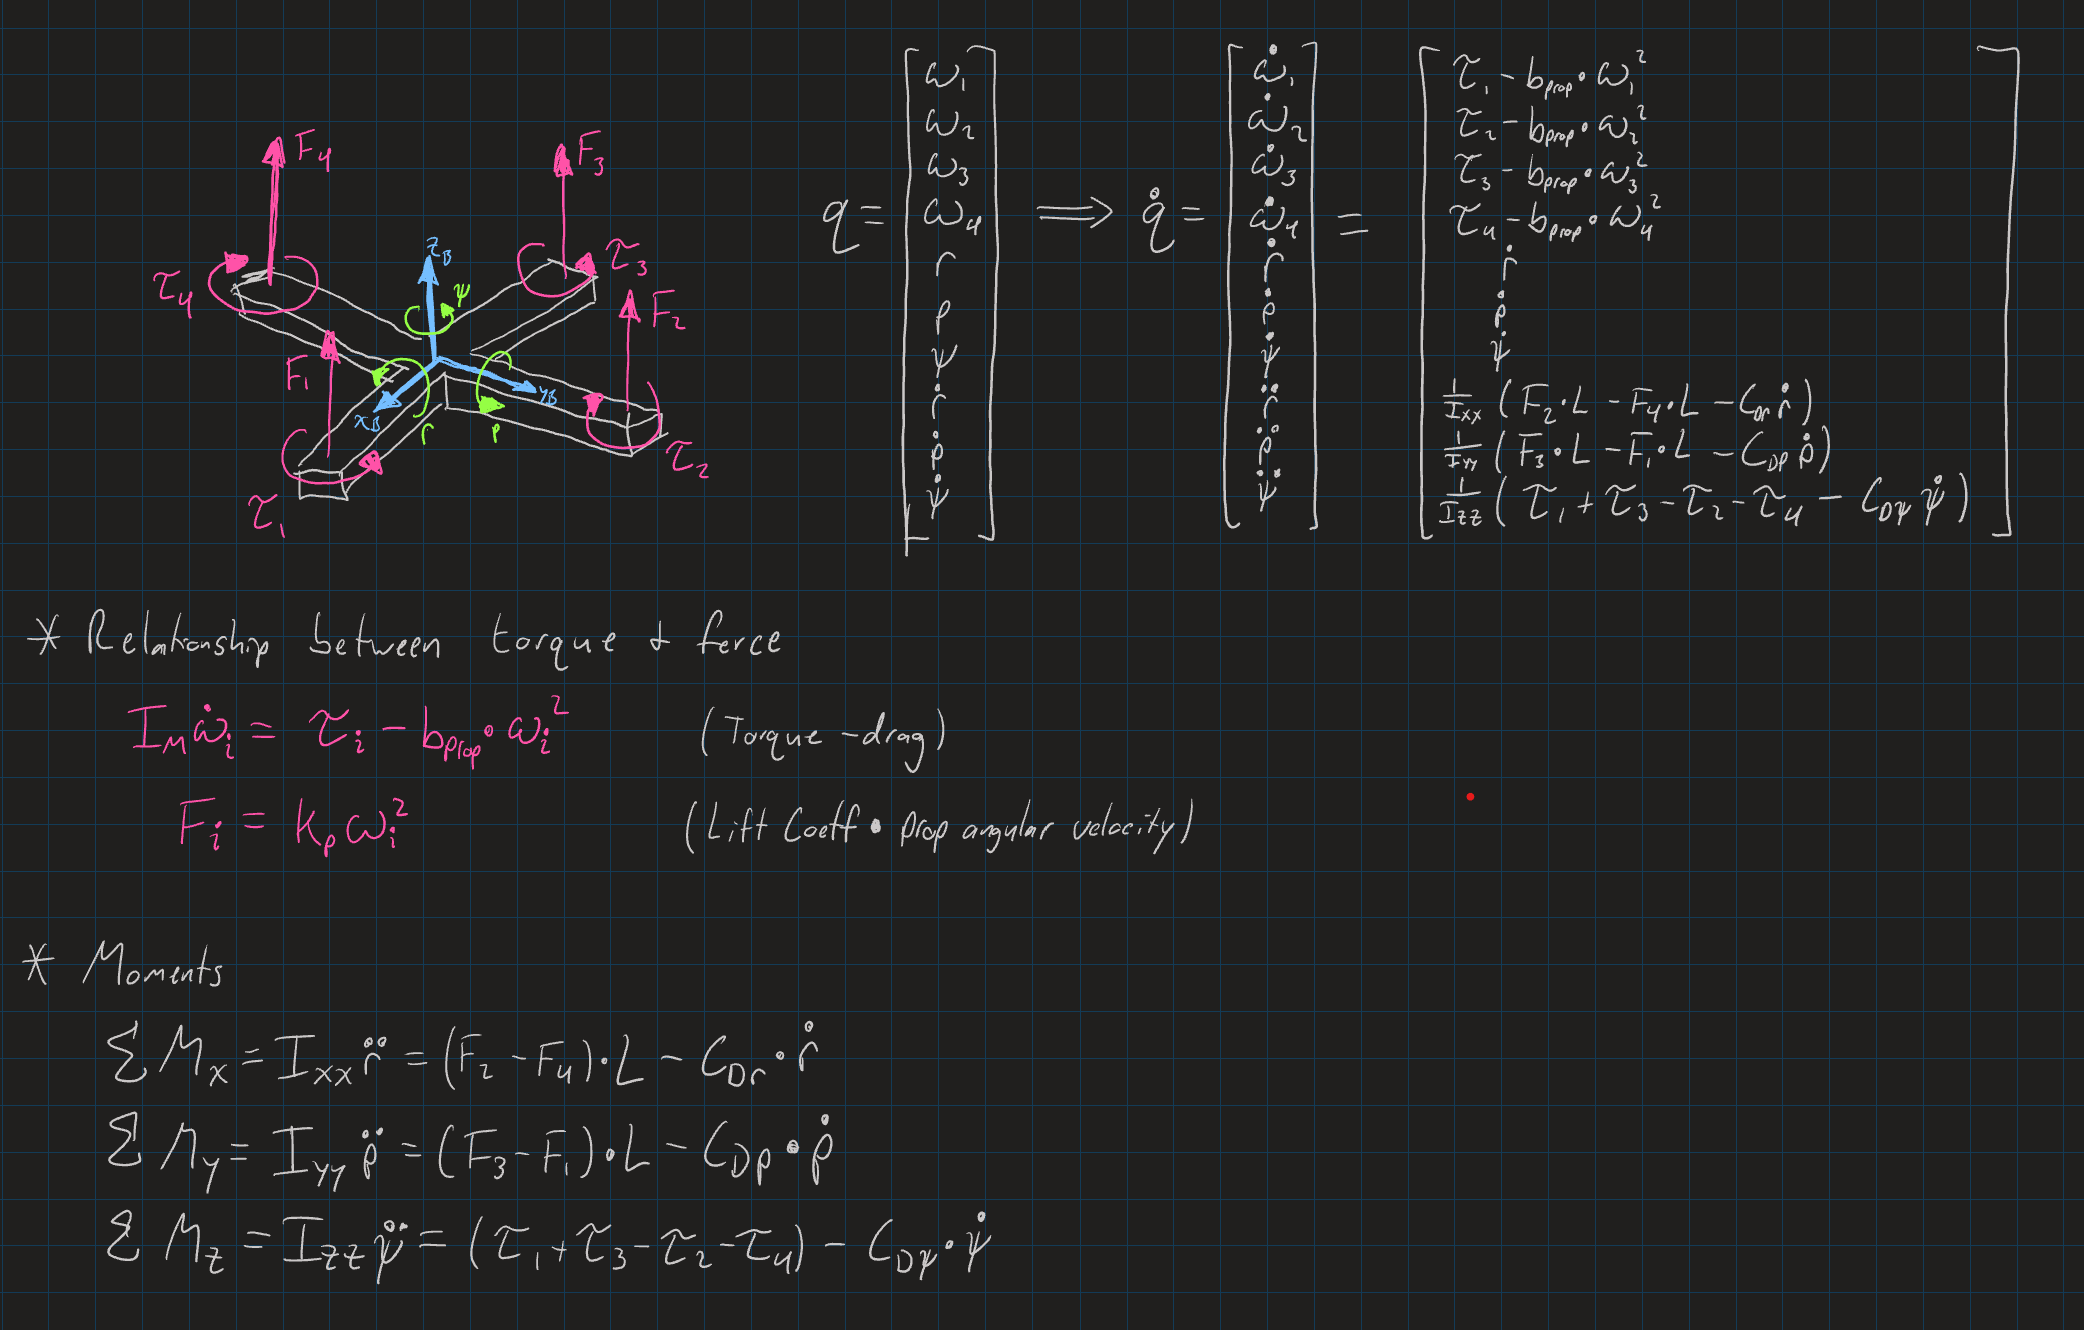 F₄
F₃
τ₄
τ₃
z_B
ψ
F₁
F₂
x_B
r
p
y_B
τ₁
τ₂
q = [ω₁ ω₂ ω₃ ω₄ r p ψ ṙ ṗ ψ̇] ⟹ q̇ = [ω̇₁ ω̇₂ ω̇₃ ω̇₄ ṙ ṗ ψ̇ r̈ p̈ ψ̈] =
τ₁ - b_prop · ω₁²
τ₂ - b_prop · ω₂²
τ₃ - b_prop · ω₃²
τ₄ - b_prop · ω₄²
ṙ
ṗ
ψ̇
1/I_xx (F₂·L - F₄·L - C_Dr ṙ)
1/I_yy (F₃·L - F₁·L - C_Dp ṗ)
1/I_zz (τ₁ + τ₃ - τ₂ - τ₄ - C_Dψ ψ̇)
* Relationship between torque & force
I_M ω̇_i = τ_i - b_prop · ω_i² (Torque - drag)
F_i = k_p ω_i² (Lift Coeff · prop angular velocity)
* Moments
Σ M_x = I_xx r̈ = (F₂ - F₄)·L - C_Dr · ṙ
Σ M_y = I_yy p̈ = (F₃ - F₁)·L - C_Dp · ṗ
Σ M_z = I_zz ψ̈ = (τ₁ + τ₃ - τ₂ - τ₄) - C_Dψ · ψ̇